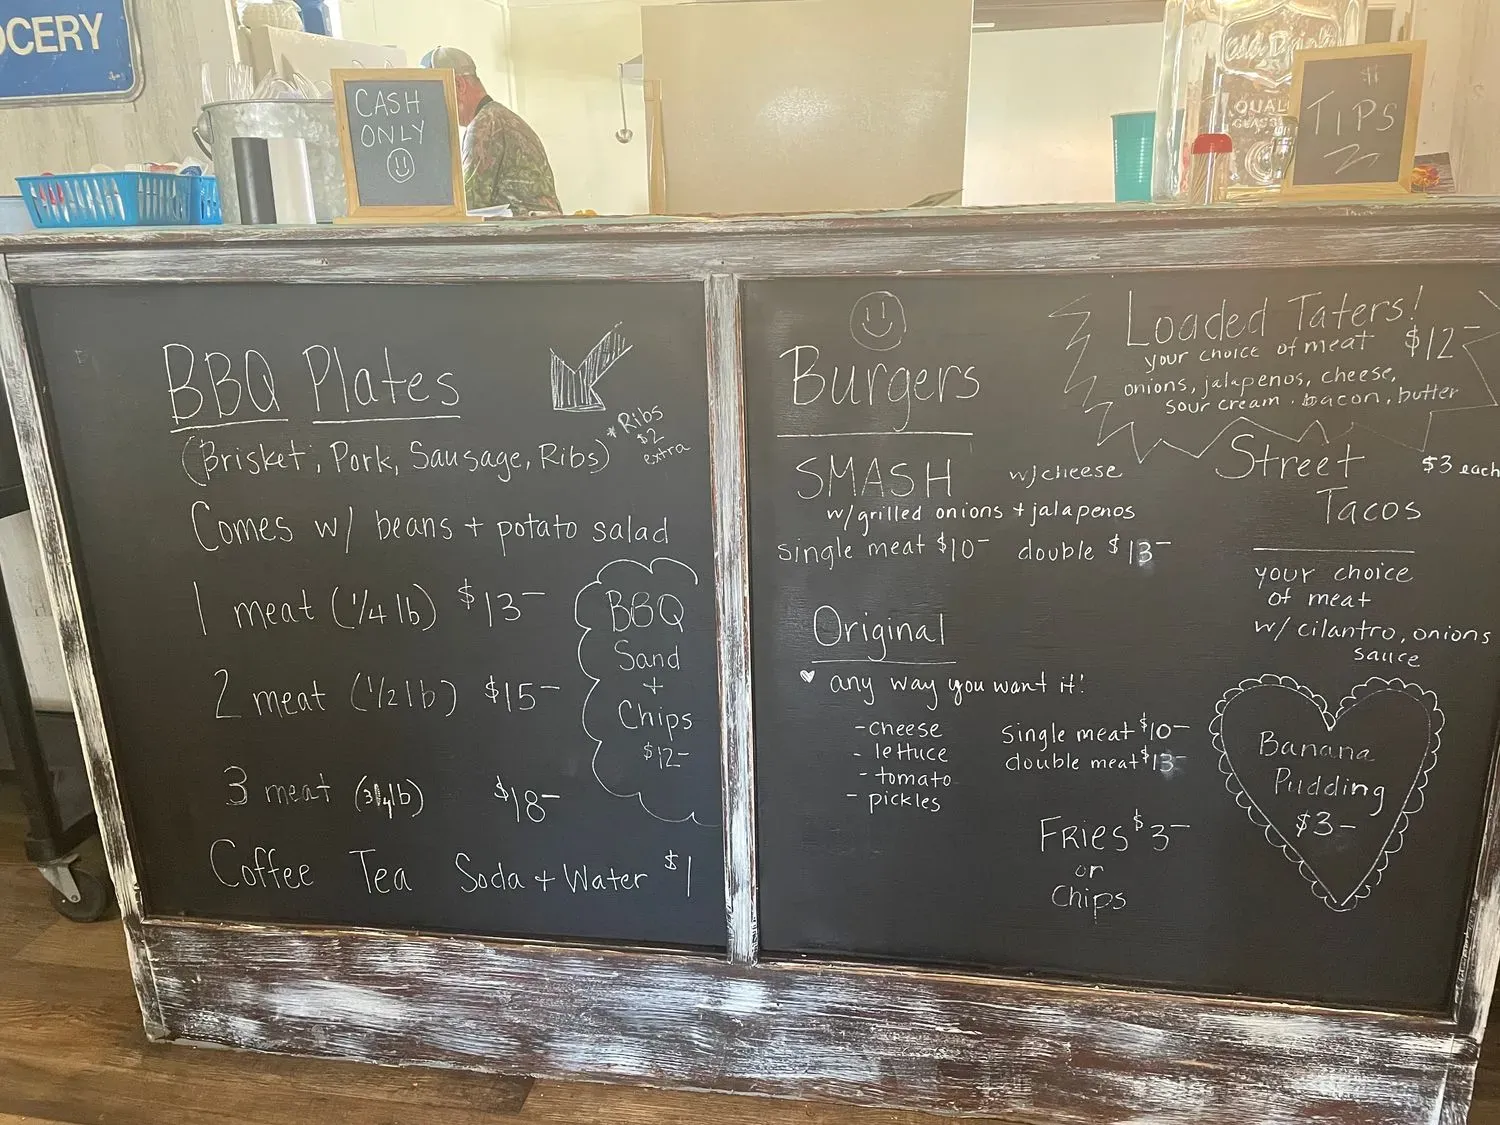 OCERY
CASH
ONLY
TIPS
BBQ Plates
(Brisket, Pork, Sausage, Ribs)
* Ribs
$2
extra
Comes w/ beans + potato salad
1 meat (1/4 lb) $13-
2 meat (1/2 lb) $15-
3 meat (3/4 lb) $18-
BBQ
Sand
+
Chips
$12-
Coffee Tea Soda + Water $1
Burgers
SMASH w/cheese
w/grilled onions + jalapenos
single meat $10- double $13-
Original
any way you want it!
- cheese
- lettuce
- tomato
- pickles
single meat $10-
double meat $13-
FRIES $3-
or
Chips
Loaded Taters!
your choice of meat $12-
onions, jalapenos, cheese,
sour cream, bacon, butter
Street $3 each
Tacos
your choice
of meat
w/ cilantro, onions
sauce
Banana
Pudding
$3-